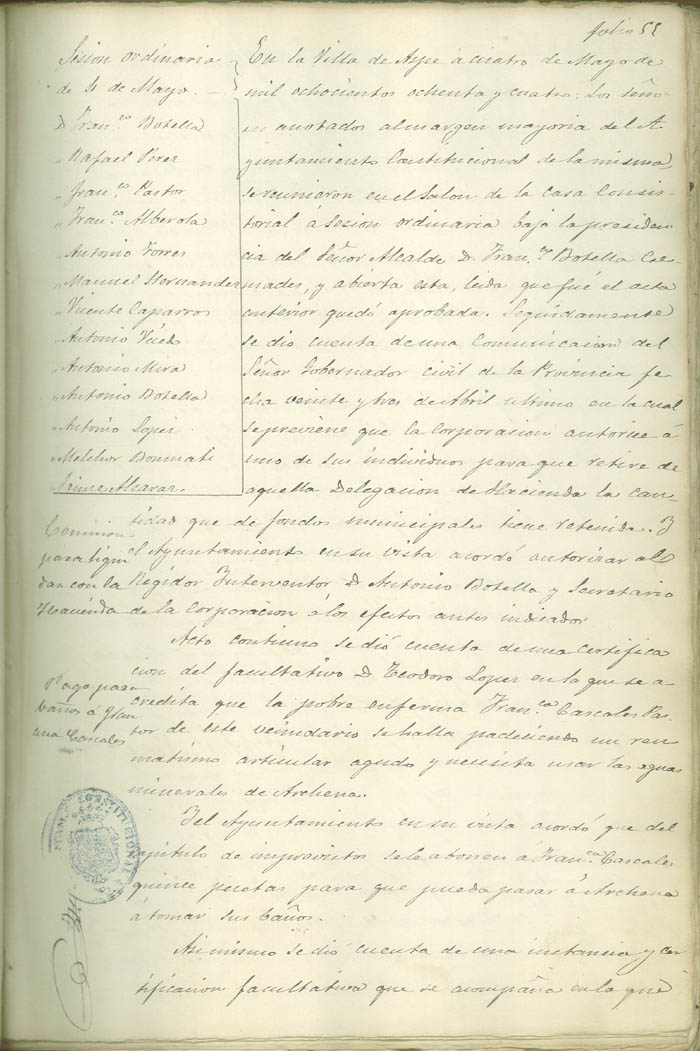 folio 55
Sesion ordinaria
de 4 de Mayo. —
D Fran.co Botella
" Rafael Perez
" Fran.co Pastor
" Fran.co Alberola
" Antonio Torres
" Manuel Hernandez
" Vicente Caparros
" Antonio
" Antonio Mira
" Antonio Botella
" Antonio Lopez
" Melchor Bonmati
" Jaime Alcaraz.
En la Villa de Aspe á cuatro de Mayo de
mil ochocientos ochenta y cuatro: Los seño-
res anotados al margen mayoria del A
yuntamiento Constitucional de la misma,
se reunieron en el Salon de la Casa Consis-
torial á sesion ordinaria bajo la presiden
cia del Señor Alcalde D. Fran.co Botella Cre-
mades, y abierta esta, leida que fué el acta
anterior quedó aprobada. Seguidamente
se dio cuenta de una comunicacion del
Señor Gobernador civil de la Provincia fe
cha veinte y tres de Abril ultimo en la cual
se previene que la Corporacion autorice á
uno de sus individuos para que retire de
aquella Delegacion de Hacienda la can-
tidad que de fondos municipales tiene retenida. Y
el Ayuntamiento en su vista acordó autorizar al
Regidor Interventor D Antonio Botella y Secretario
de la Corporacion á los efectos antes indicados
Comision
para liqui
dar con la
Hacienda
Acto continuo se dió cuenta de una certifica
cion del facultativo D Teodoro Lopez en la que se a
credita que la pobre enferma Fran.ca Cascales Pas-
tor de este vecindario se halla padeciendo un reu
matismo articular agudo y necesita usar las aguas
minerales de Archena.
Pago para
baños á Fran
cisca Cascales
Y el Ayuntamiento en su vista acordó que del
capitulo de imprevistos se le abonen á Fran.ca Cascales
quince pesetas para que pueda pasar á Archena
á tomar sus baños.
Asi mismo se dió cuenta de una instancia y cer
tificacion facultativa que se acompaña en la que
CONSTITUCIONAL